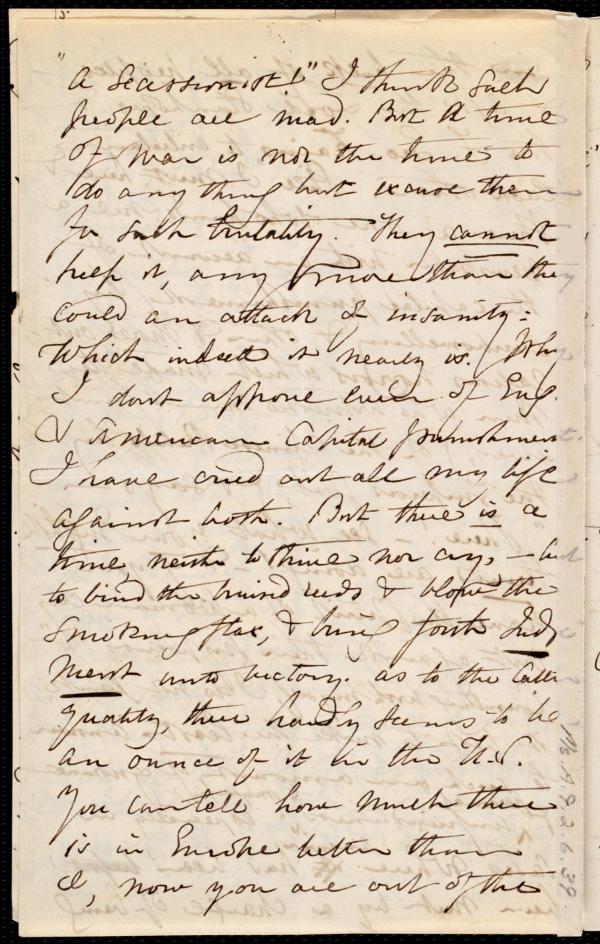 "A Secessionist!" I think such
people are mad. But a time
of war is not the time to
do any thing but excuse them
for such brutality. They cannot
help it, any more than they
could an attack of insanity =
Which indeed it nearly is. Why
I dont approve even of Eng.
& American Capital punishment.
I have cried out all my life
against both. But there is a
time neither to strive nor cry, - but
to bind the bruised reeds & blow the
smoking flax, & bring forth Judg
ment unto victory. as to the latter
quality, there hardly seems to be
an ounce of it in the U.S.
You can tell how much there
is in Europe better than
I, now you are out of the
Ms. A.9.2.6.39